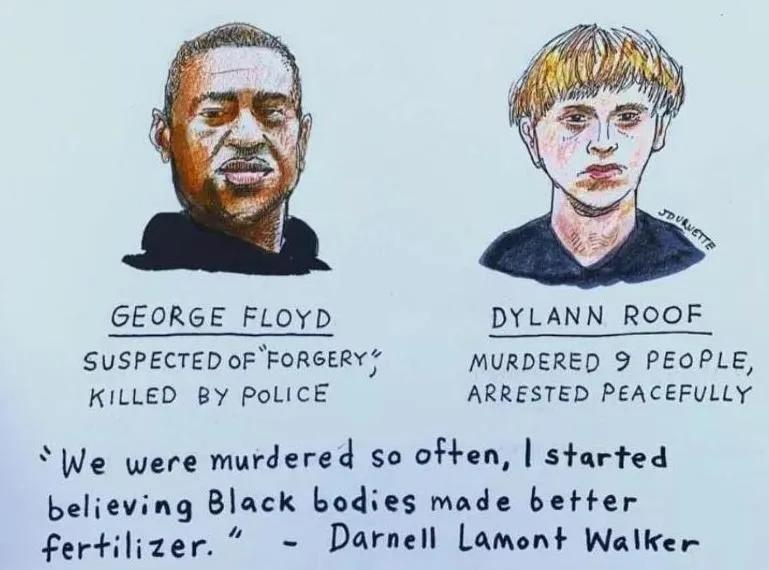 JDURUETTE
GEORGE FLOYD
SUSPECTED OF "FORGERY";
KILLED BY POLICE
DYLANN ROOF
MURDERED 9 PEOPLE,
ARRESTED PEACEFULLY
"We were murdered so often, I started
believing Black bodies made better
fertilizer." - Darnell Lamont Walker